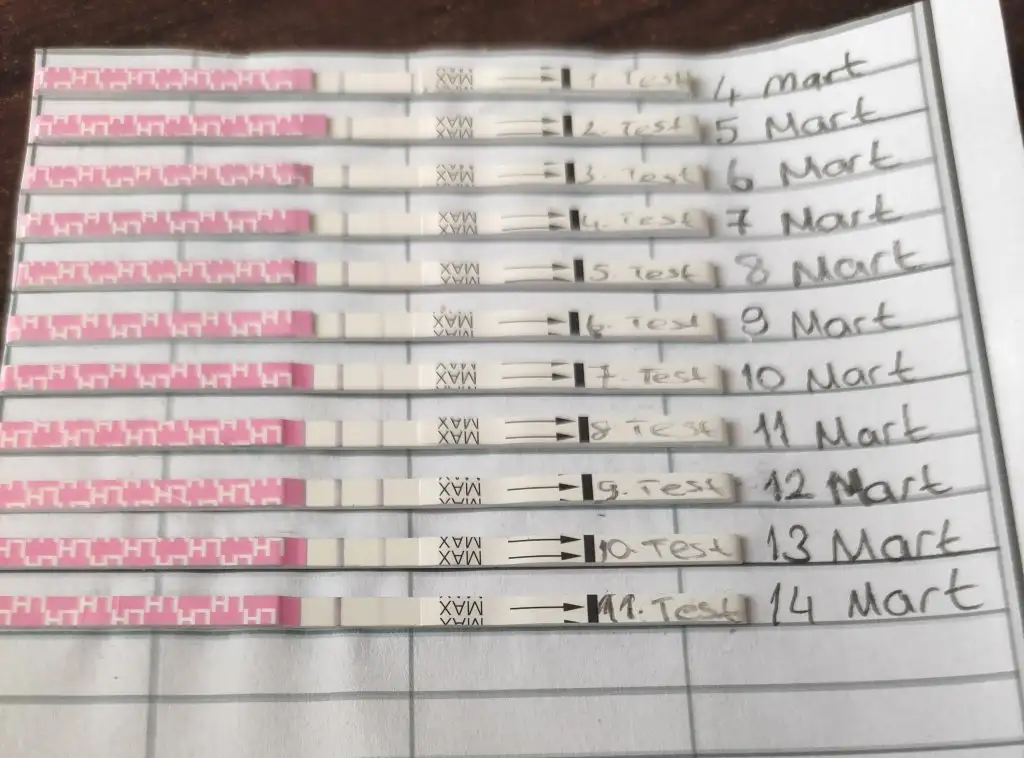 MAX 1. Test 4 Mart
MAX 2. Test 5 Mart
MAX 3. Test 6 Mart
MAX 4. Test 7 Mart
MAX 5. Test 8 Mart
MAX 6. Test 9 Mart
MAX 7. Test 10 Mart
MAX 8 Test 11 Mart
MAX 9. Test 12 Mart
MAX 10. Test 13 Mart
MAX 11. Test 14 Mart